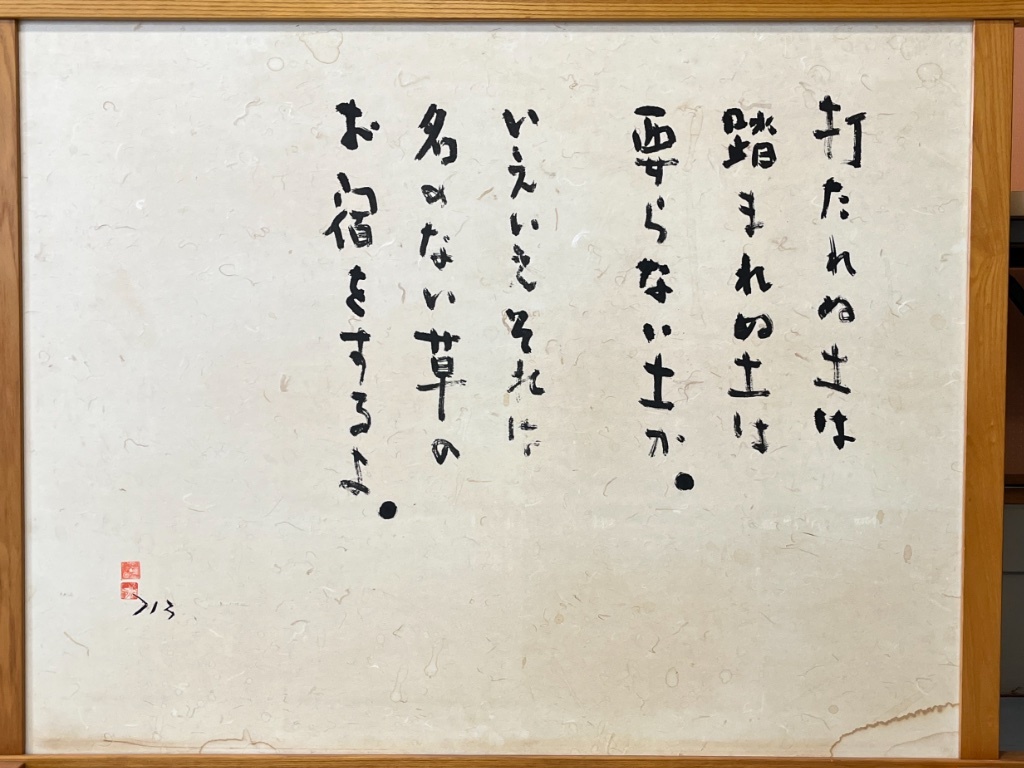 打たれぬ土は
踏まれぬ土は
要らない土か。
いえいえそれは
名のない草の
お宿をするよ。